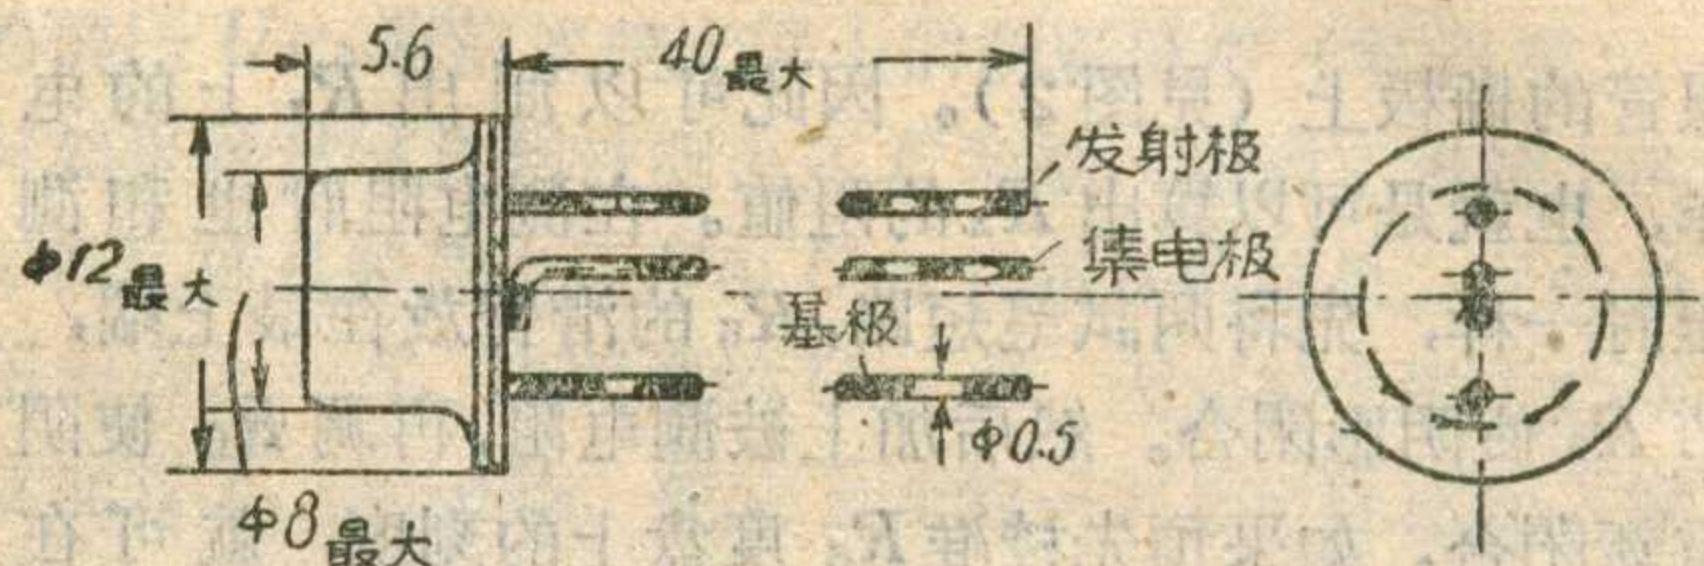 5.6
40最大
发射极
集电极
φ12最大
基极
φ0.5
φ8最大